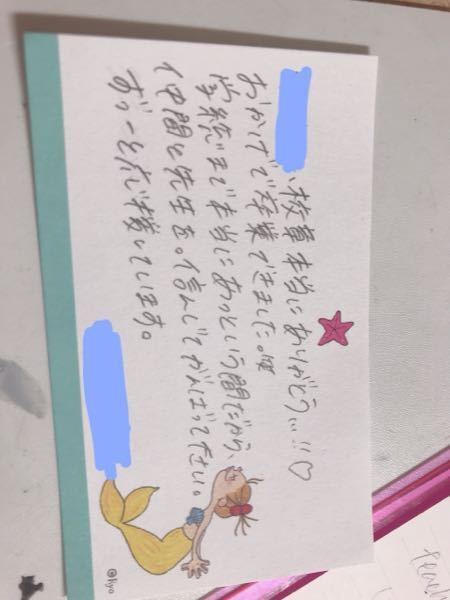 、校章本当にありがとう…!!♡
おかげで卒業できました。
学総まで本当にあっという間だから、
仲間と先生を信んじてがんばって下さい。
ずっーと応援しています。